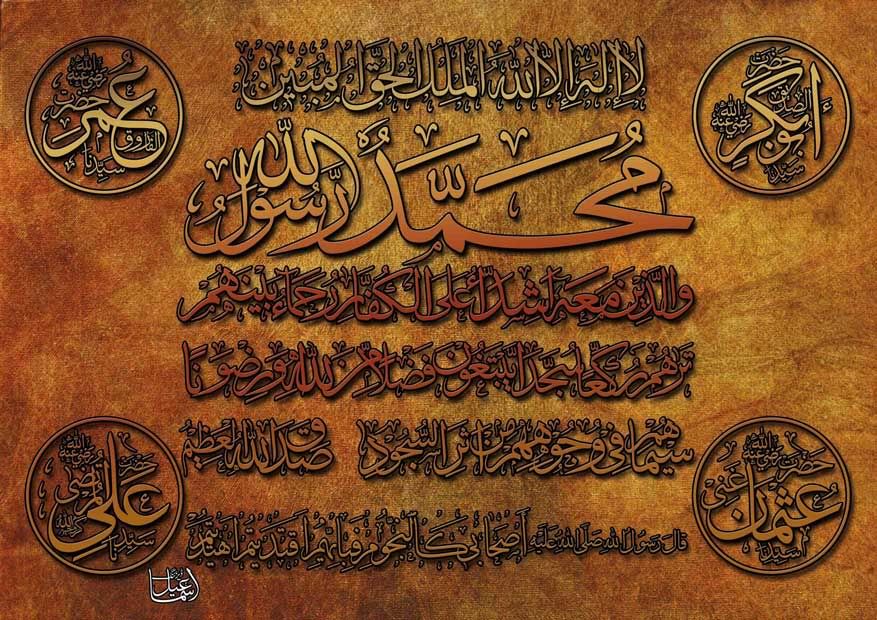 لا إله إلا الله الملك الحق المبين
محمد رسول الله
والذين معه أشداء على الكفار رحماء بينهم
تراهم ركعا سجدا يبتغون فضلا من الله ورضوانا
سيماهم في وجوههم من أثر السجود صدق الله العظيم
قال رسول الله صلى الله عليه أصحابي كالنجوم فبأيهم اقتديتم اهتديتم
حضرت سيدنا أبو بكر الصديق رضي الله عنه
حضرت سيدنا عمر الفاروق رضي الله عنه
حضرت سيدنا عثمان غني رضي الله عنه
حضرت سيدنا علي المرتضى رضي الله عنه
اسماعيل